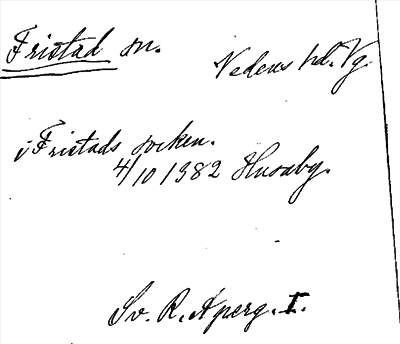 Fristad sn. Vedens hd. Vg.
j Fristads socken.
4/10 1382 Husaby.
Sv. R. Aperg. I.